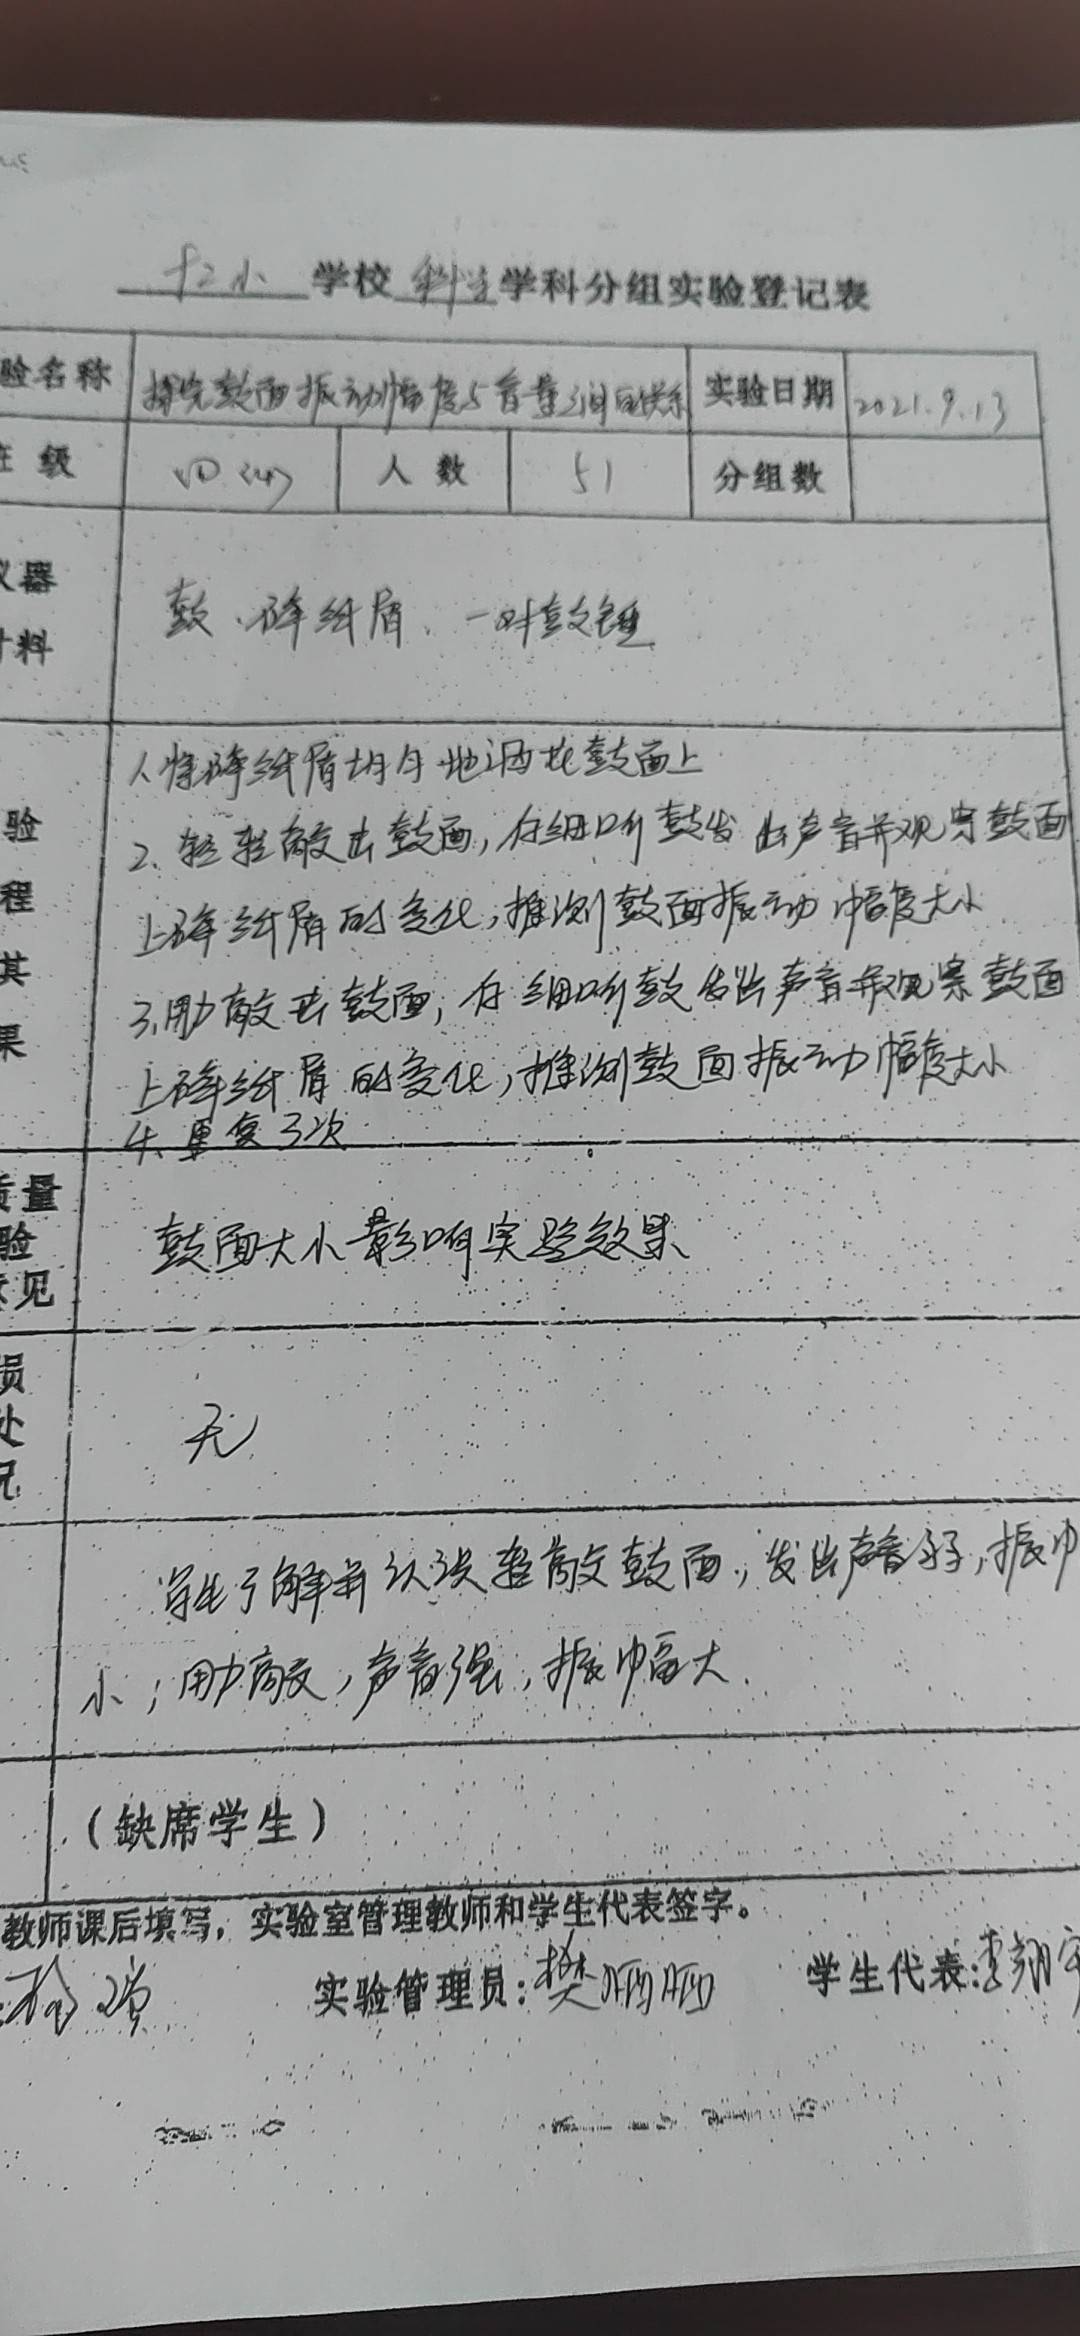 十二小 学校 科学 学科分组实验登记表
验名称 探究鼓面振动幅度与音量之间的关系 实验日期 2021.9.13
级 四(4) 人数 51 分组数
仪器
料
鼓、碎纸屑、一对鼓锤
验
程
其
果
1、将碎纸屑均匀地洒在鼓面上
2、轻轻敲击鼓面,仔细听鼓发出声音并观察鼓面
上碎纸屑的变化,推测鼓面振动幅度大小
3、用力敲击鼓面,仔细听鼓发出声音并观察鼓面
上碎纸屑的变化,推测鼓面振动幅度大小
4、重复3次
质量
验
意见
鼓面大小影响实验效果
损
处
况
无
学生了解并认识轻敲鼓面,发出声音弱,振巾
小;用力敲,声音强,振巾畐大.
(缺席学生)
教师课后填写,实验室管理教师和学生代表签字。
实验管理员:樊丽丽 学生代表:李翔宇